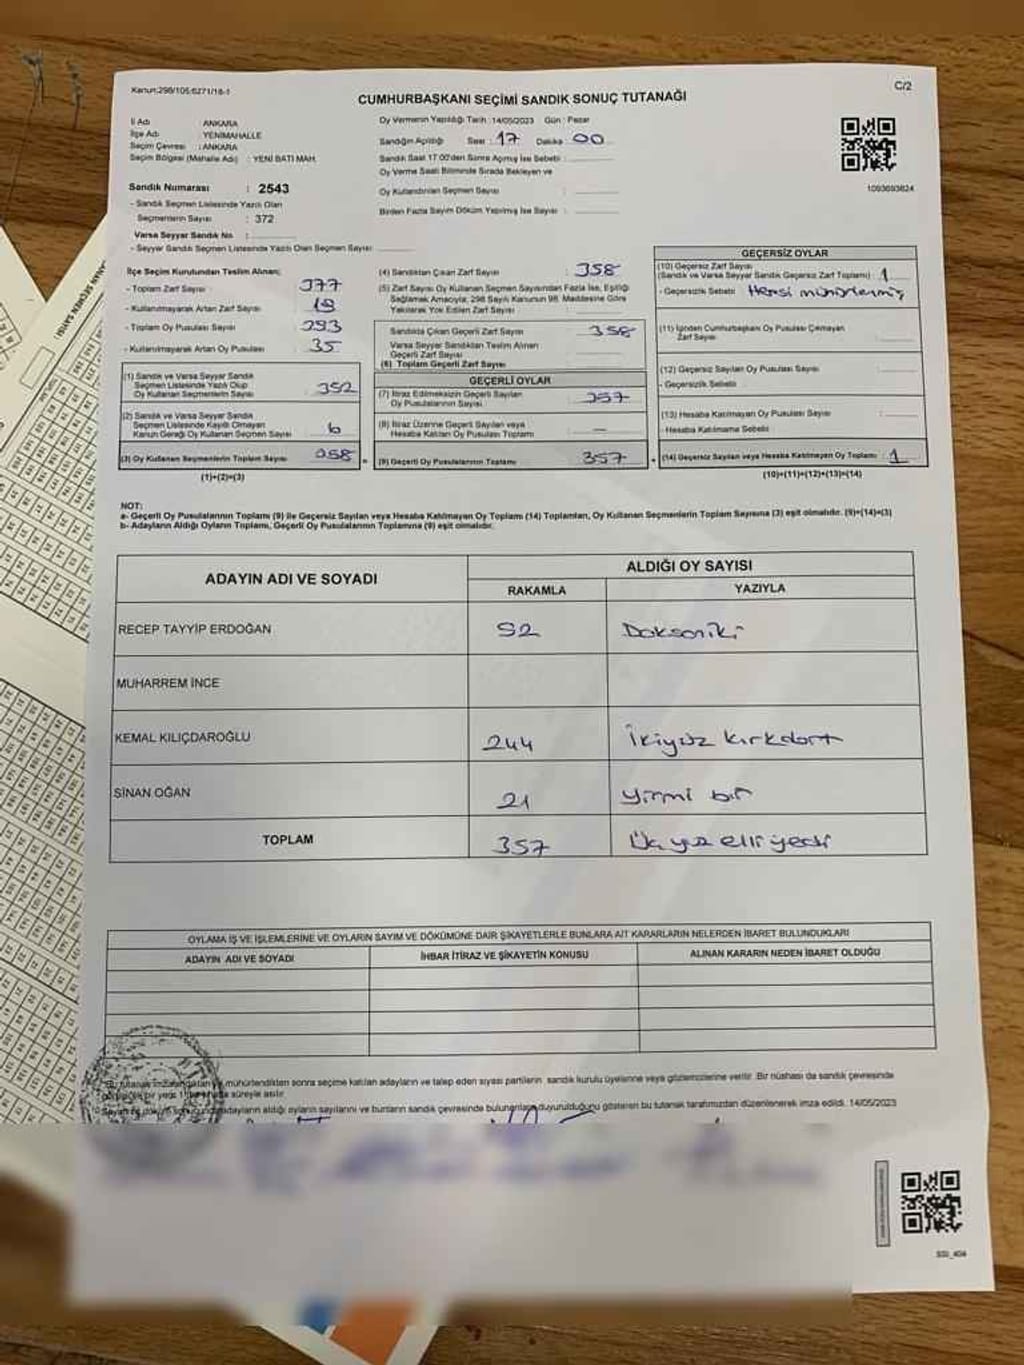 Kanun:298/105;6271/16-1
C/2
CUMHURBAŞKANI SEÇİMİ SANDIK SONUÇ TUTANAĞI
İl Adı : ANKARA
İlçe Adı : YENİMAHALLE
Seçim Çevresi : ANKARA
Seçim Bölgesi (Mahalle Adı) : YENİ BATI MAH.
Oy Vermenin Yapıldığı Tarih : 14/05/2023 Gün : Pazar
Sandığın Açıldığı Saat : 17 Dakika : 00
Sandık Saat 17:00'den Sonra Açılmış İse Sebebi :
Oy Verme Saati Bitiminde Sırada Bekleyen ve
Oy Kullandırılan Seçmen Sayısı :
Birden Fazla Sayım Döküm Yapılmış İse Sayısı :
1093693824
Sandık Numarası : 2543
- Sandık Seçmen Listesinde Yazılı Olan
Seçmenlerin Sayısı : 372
Varsa Seyyar Sandık No :
- Seyyar Sandık Seçmen Listesinde Yazılı Olan Seçmen Sayısı :
İlçe Seçim Kurulundan Teslim Alınan;
- Toplam Zarf Sayısı : 377
- Kullanılmayarak Artan Zarf Sayısı : 19
- Toplam Oy Pusulası Sayısı
- Kullanılmayarak Artan Oy Pusulası : 35
(1) Sandık ve Varsa Seyyar Sandık
Seçmen Listesinde Yazılı Olup
Oy Kullanan Seçmenlerin Sayısı : 352
(2) Sandık ve Varsa Seyyar Sandık
Seçmen Listesinde Kayıtlı Olmayan
Kanun Gereği Oy Kullanan Seçmen Sayısı : 6
(3) Oy Kullanan Seçmenlerin Toplam Sayısı : 358
(1)+(2)=(3)
(4) Sandıktan Çıkan Zarf Sayısı : 358
(5) Zarf Sayısı Oy Kullanan Seçmen Sayısından Fazla İse, Eşitliği
Sağlamak Amacıyla, 298 Sayılı Kanunun 98. Maddesine Göre
Yakılarak Yok Edilen Zarf Sayısı :
Sandıkta Çıkan Geçerli Zarf Sayısı : 358
Varsa Seyyar Sandıktan Teslim Alınan
Geçerli Zarf Sayısı
(6) Toplam Geçerli Zarf Sayısı :
GEÇERLİ OYLAR
(7) İtiraz Edilmeksizin Geçerli Sayılan
Oy Pusulalarının Sayısı : 357
(8) İtiraz Üzerine Geçerli Sayılan veya
Hesaba Katılan Oy Pusulası Toplamı : —
(9) Geçerli Oy Pusulalarının Toplamı : 357
GEÇERSİZ OYLAR
(10) Geçersiz Zarf Sayısı
(Sandık ve Varsa Seyyar Sandık Geçersiz Zarf Toplamı) : 1
- Geçersizlik Sebebi : Hepsi mühürlenmiş
(11) İçinden Cumhurbaşkanı Oy Pusulası Çıkmayan
Zarf Sayısı :
(12) Geçersiz Sayılan Oy Pusulası Sayısı :
- Geçersizlik Sebebi :
(13) Hesaba Katılmayan Oy Pusulası Sayısı :
- Hesaba Katılmama Sebebi :
(14) Geçersiz Sayılan veya Hesaba Katılmayan Oy Toplamı : 1
(10)+(11)+(12)+(13)=(14)
NOT:
a- Geçerli Oy Pusulalarının Toplamı (9) ile Geçersiz Sayılan veya Hesaba Katılmayan Oy Toplamı (14) Toplamları, Oy Kullanan Seçmenlerin Toplam Sayısına (3) eşit olmalıdır. (9)+(14)=(3)
b- Adayların Aldığı Oyların Toplamı, Geçerli Oy Pusulalarının Toplamına (9) eşit olmalıdır.
ADAYIN ADI VE SOYADI ALDIĞI OY SAYISI
RAKAMLA YAZIYLA
RECEP TAYYİP ERDOĞAN 92 Doksaniki
MUHARREM İNCE
KEMAL KILIÇDAROĞLU 244 İkiyüz kırkdört
SİNAN OĞAN 21 yirmi bir
TOPLAM 357 Üçyüz elli yedi
OYLAMA İŞ VE İŞLEMLERİNE VE OYLARIN SAYIM VE DÖKÜMÜNE DAİR ŞİKAYETLERLE BUNLARA AİT KARARLARIN NELERDEN İBARET BULUNDUKLARI
ADAYIN ADI VE SOYADI İHBAR İTİRAZ VE ŞİKAYETİN KONUSU ALINAN KARARIN NEDEN İBARET OLDUĞU
Bu tutanak imzalandıktan ve mühürlendikten sonra seçime katılan adayların ve talep eden siyasi partilerin sandık kurulu üyelerine veya gözlemcilerine verilir. Bir nüshası da sandık çevresinde
bir yere süreyle asılır.
adayların aldığı oyların sayılarını ve bunların sandık çevresinde bulunanlara duyurulduğunu gösteren bu tutanak tarafımızdan düzenlenerek imza edildi. 14/05/2023
SSI_404